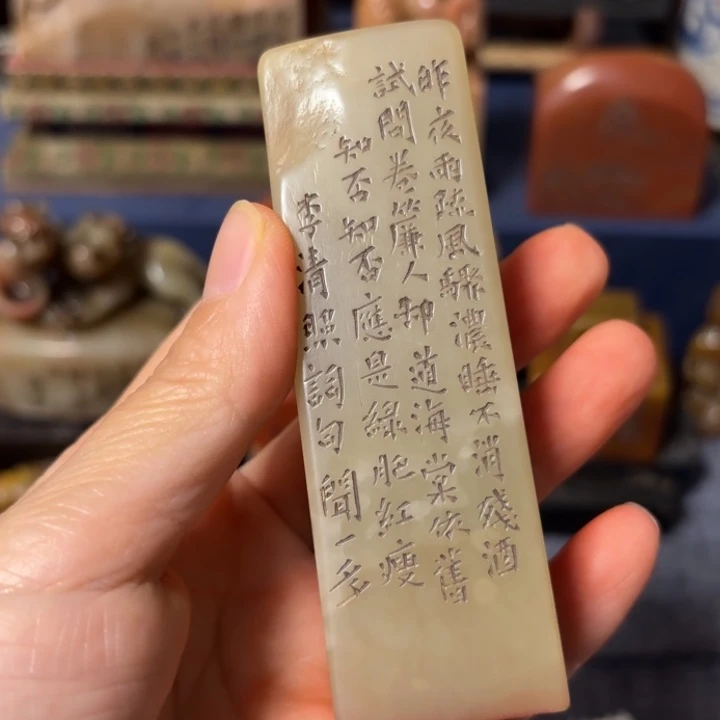 昨夜雨疏風驟濃睡不消殘酒
試問卷簾人卻道海棠依舊
知否知否應是綠肥紅瘦
李清照詞句聞一多